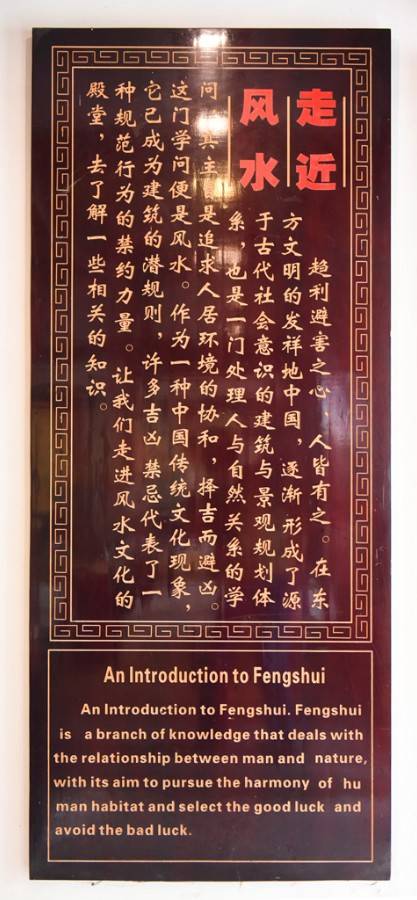 走近
风水
趋利避害之心，人皆有之。在东
方文明的发祥地中国，逐渐形成了源
于古代社会意识的建筑与景观规划体
系，也是一门处理人与自然关系的学
问 其主 是追求人居环境的协和，择吉而避凶。
这门学问便是风水。作为一种中国传统文化现象，
它已成为建筑的潜规则，许多吉凶 禁忌代表了一
种规范行为的禁约力量。让我们走进风水文化的
殿堂，去了解一些相关的知识。
An Introduction to Fengshui
An Introduction to Fengshui. Fengshui
is a branch of knowledge that deals with
the relationship between man and nature,
with its aim to pursue the harmony of hu
man habitat and select the good luck and
avoid the bad luck.